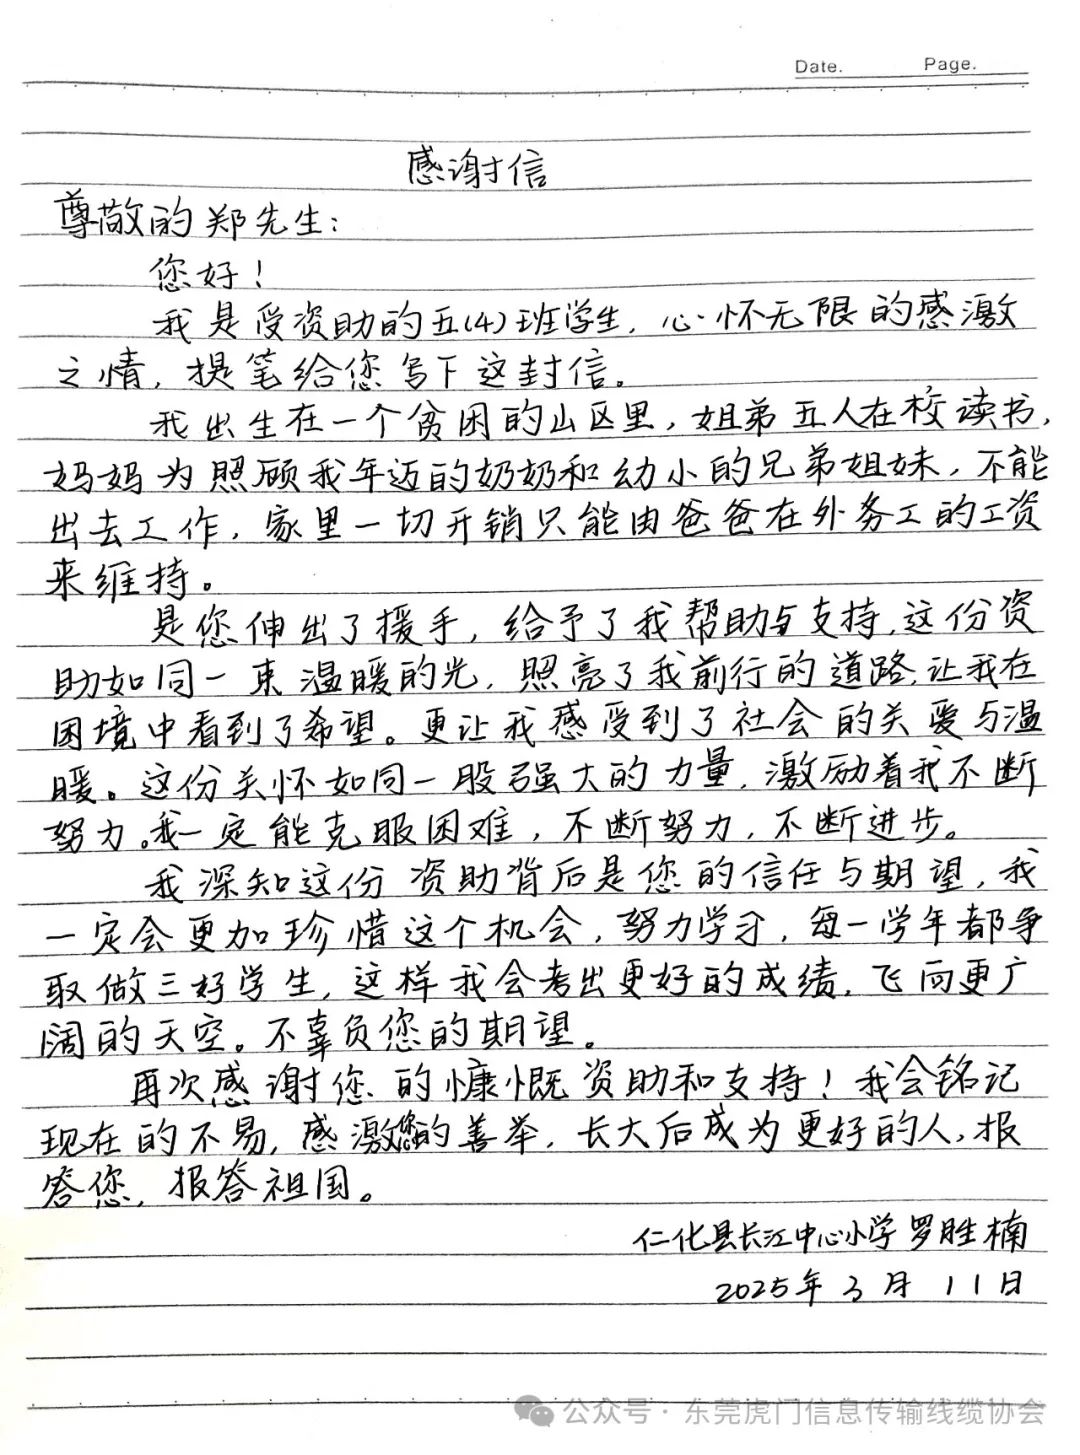 Date. Page.
感谢信
尊敬的郑先生：
您好！
我是受资助的五(4)班学生，心怀无限的感激
之情，提笔给您写下这封信。
我出生在一个贫困的山区里，姐弟五人在校读书，
妈妈为照顾我年迈的奶奶和幼小的兄弟姐妹，不能
出去工作，家里一切开销只能由爸爸在外务工的工资
来维持。
是您伸出了援手，给予了我帮助与支持，这份资
助如同一束温暖的光，照亮了我前行的道路，让我在
困境中看到了希望。更让我感受到了社会的关爱与温
暖。这份关怀如同一股强大的力量，激励着我不断
努力。我一定能克服困难，不断努力，不断进步。
我深知这份资助背后是您的信任与期望，我
一定会更加珍惜这个机会，努力学习，每一学年都争
取做三好学生，这样我会考出更好的成绩，飞向更广
阔的天空。不辜负您的期望。
再次感谢您的慷慨资助和支持！我会铭记
现在的不易，感激您的善举，长大后成为更好的人，报
答您，报答祖国。
仁化县长江中心小学罗胜楠
2025年3月11日
公众号·东莞虎门信息传输线缆协会